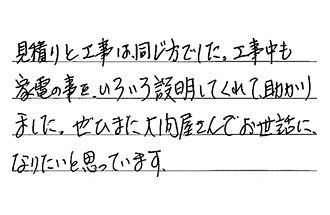 見積りと工事は、同じ方でした。工事中も
家電の事を、いろいろ説明してくれて、助かり
ました。ぜひまた大向屋さんでお世話に、
なりたいと思っています。